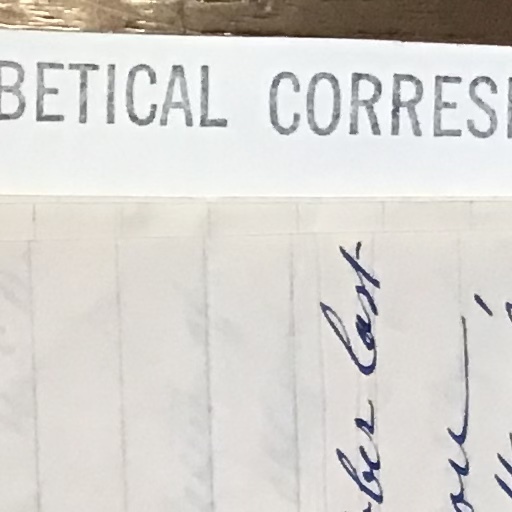 ber last
ou
BETICAL CORRES